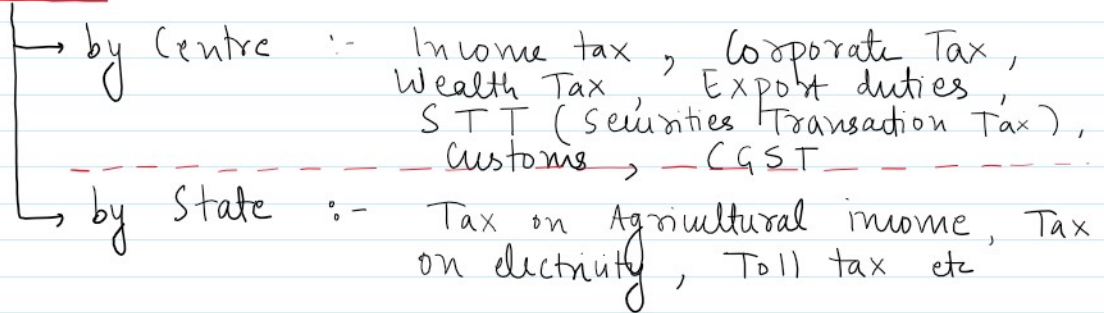 by Centre :- Income tax, Corporate Tax,
Wealth Tax, Export duties,
STT (Securities Transaction Tax),
Customs, CGST
by State :- Tax on Agricultural income, Tax
on electricity, Toll tax etc